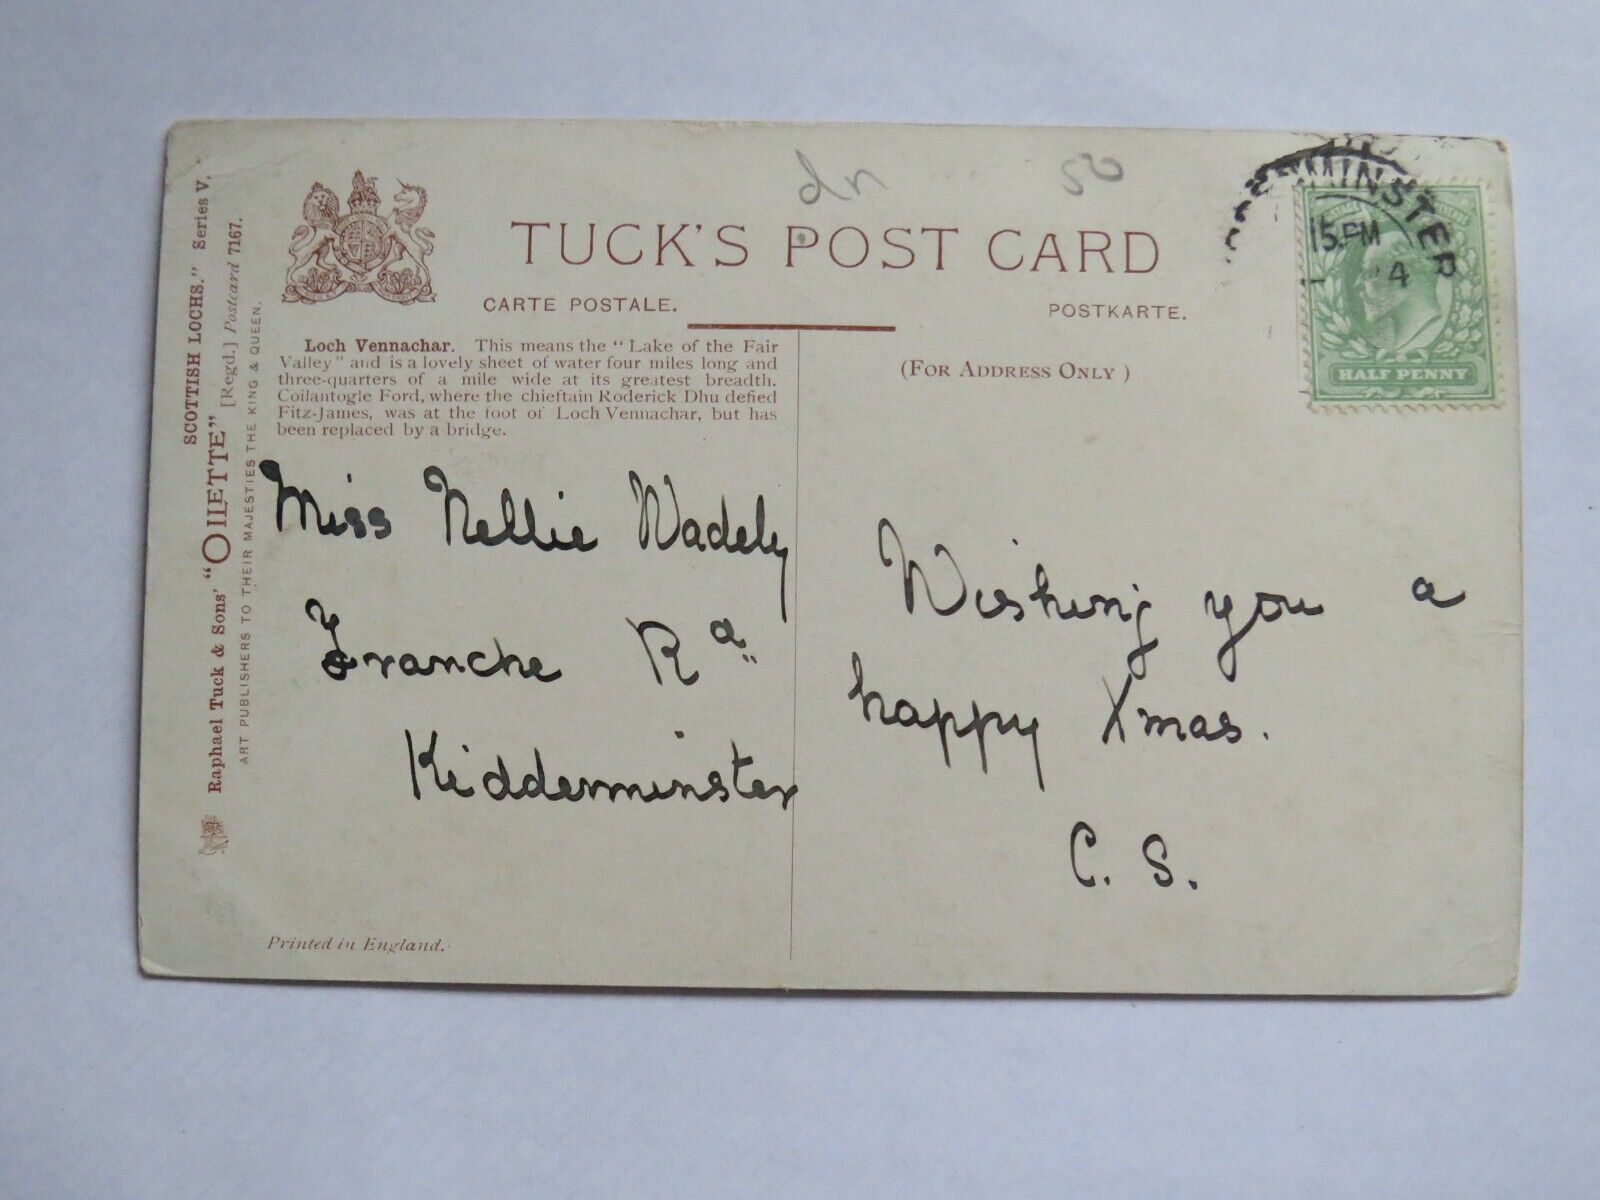 SCOTTISH LOCHS." Series V.
Raphael Tuck & Sons' "OILETTE" [Regd.] Postcard 7167.
ART PUBLISHERS TO THEIR MAJESTIES THE KING & QUEEN.
TUCK'S POST CARD
CARTE POSTALE.
POSTKARTE.
Loch Vennachar. This means the "Lake of the Fair
Valley" and is a lovely sheet of water four miles long and
three-quarters of a mile wide at its greatest breadth.
Coilantogle Ford, where the chieftain Roderick Dhu defied
Fitz-James, was at the foot of Loch Vennachar, but has
been replaced by a bridge.
(FOR ADDRESS ONLY)
50
MINSTER
15.PM
4
HALF PENNY
Miss Nellie Wadely
Franche Rd
Kidderminster
Wishing you a
happy Xmas.
C. S.
Printed in England.